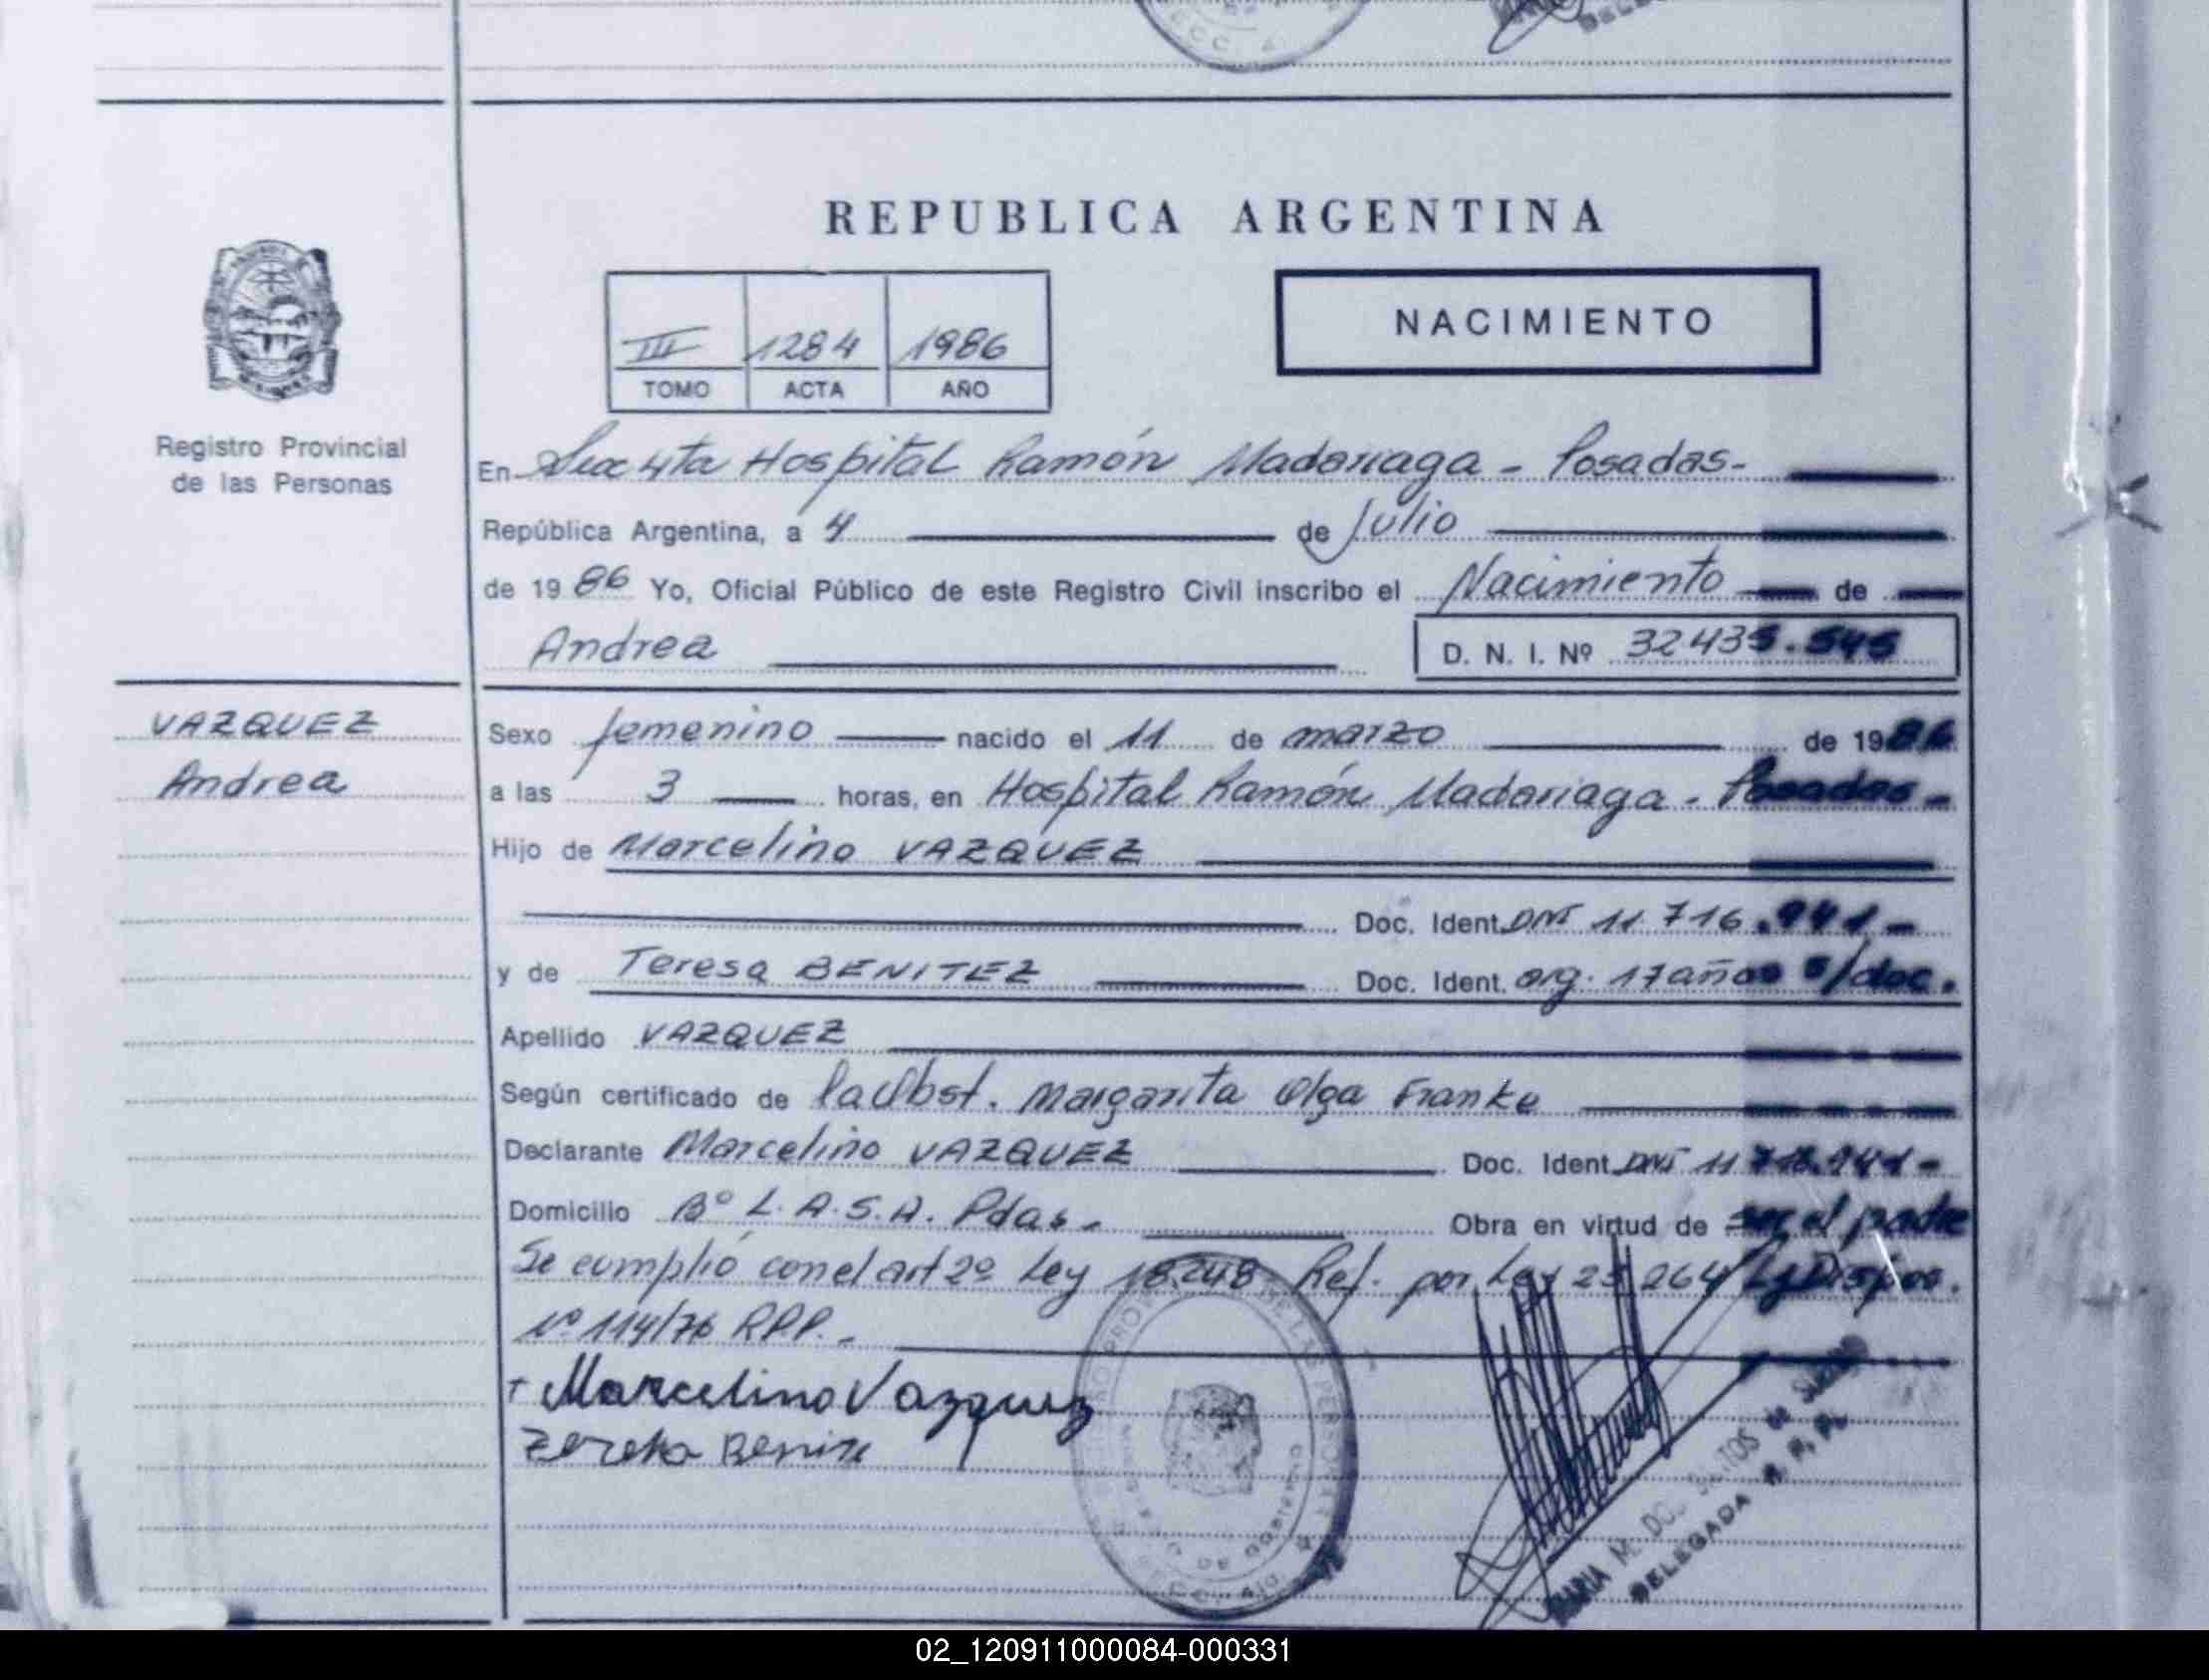 REPUBLICA ARGENTINA
NACIMIENTO
III 1284 1986
TOMO ACTA AÑO
Registro Provincial
de las Personas
En Hospital Ramón Madariaga - Posadas-
República Argentina, a 4 de Julio
de 1986 Yo, Oficial Público de este Registro Civil inscribo el Nacimiento de
Andrea D. N. I. Nº 32435.545
VAZQUEZ
Andrea
Sexo femenino nacido el 11 de marzo de 1986
a las 3 horas, en Hospital Ramón Madariaga - Posadas-
Hijo de Marcelino VAZQUEZ
Doc. Ident. DNI 11.716.941-
y de Teresa BENITEZ Doc. Ident. arg. 17 años s/doc.
Apellido VAZQUEZ
Según certificado de la Obst. Margarita Olga Franke
Declarante Marcelino VAZQUEZ Doc. Ident. DNI 11
Domicilio Bº L.A.S.A. Pdas- Obra en virtud de ser el padre
Se cumplió con el art 2º Ley 18.248 Ref. por Ley 23.264 y Dispos.
Nº 114/76 RPP.-
Marcelino Vazquez
DELEGADA R. P. P.
02_120911000084-000331